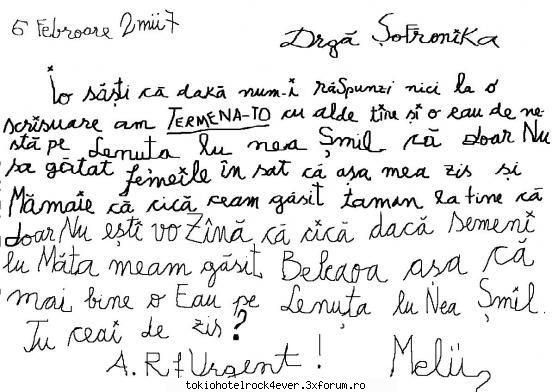 6 Febroare 2mii7
Drgă Șofronika
Io săști că dakă num-i răspunzi nici la o
scrisuare am TERMENA-TO cu alde tine și o eau de ne-
stă pe Lenuța lu nea Șmil că doar Nu
sa gătat femeile în sat că așa mea zis și
Mămaie că cică ceam găsit taman la tine că
doar Nu ești vo Zînă că cică dacă semeni
lu Măta meam găsit Beleaoa așa că
mai bine o Eau pe Lenuța lu Nea Șmil.
Tu ceai de zis?
A.R f Urgent!
Melii
tokiohotelrock4ever.3xforum.ro